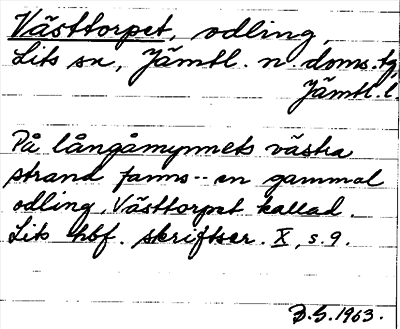 Västtorpet, odling,
Lits sn, Jämtl. n. doms. tg,
Jämtl. l.
På långåmynnets västra
strand fanns -- en gammal
odling, Västtorpet kallad.
Lits hbf. skriftser. X, s. 9.
B.G. 1963.